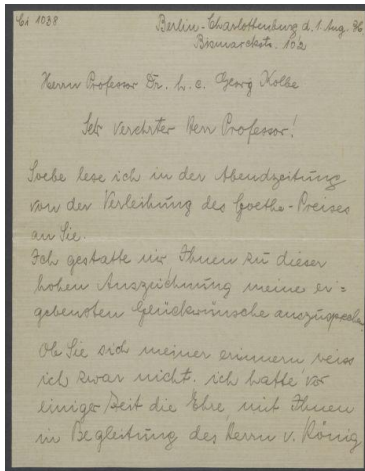 Berlin-Charlottenburg d. 1. Aug. 36
Bismarckstr. 102
Herrn Professor Dr. h. c. Georg Kolbe
Sehr verehrter Herr Professor!
Soebe lese ich in der Abendzeitung
von der Verleihung des Goethe-Preises
an Sie.
Ich gestatte mir Ihnen zu dieser
hohen Auszeichnung meine er=
gebensten Glückwünsche auszusprechen.
Ob Sie sich meiner erinnern weiss
ich zwar nicht. ich hatte vor
einiger Zeit die Ehre mit Ihnen
in Begleitung des Herrn v. König